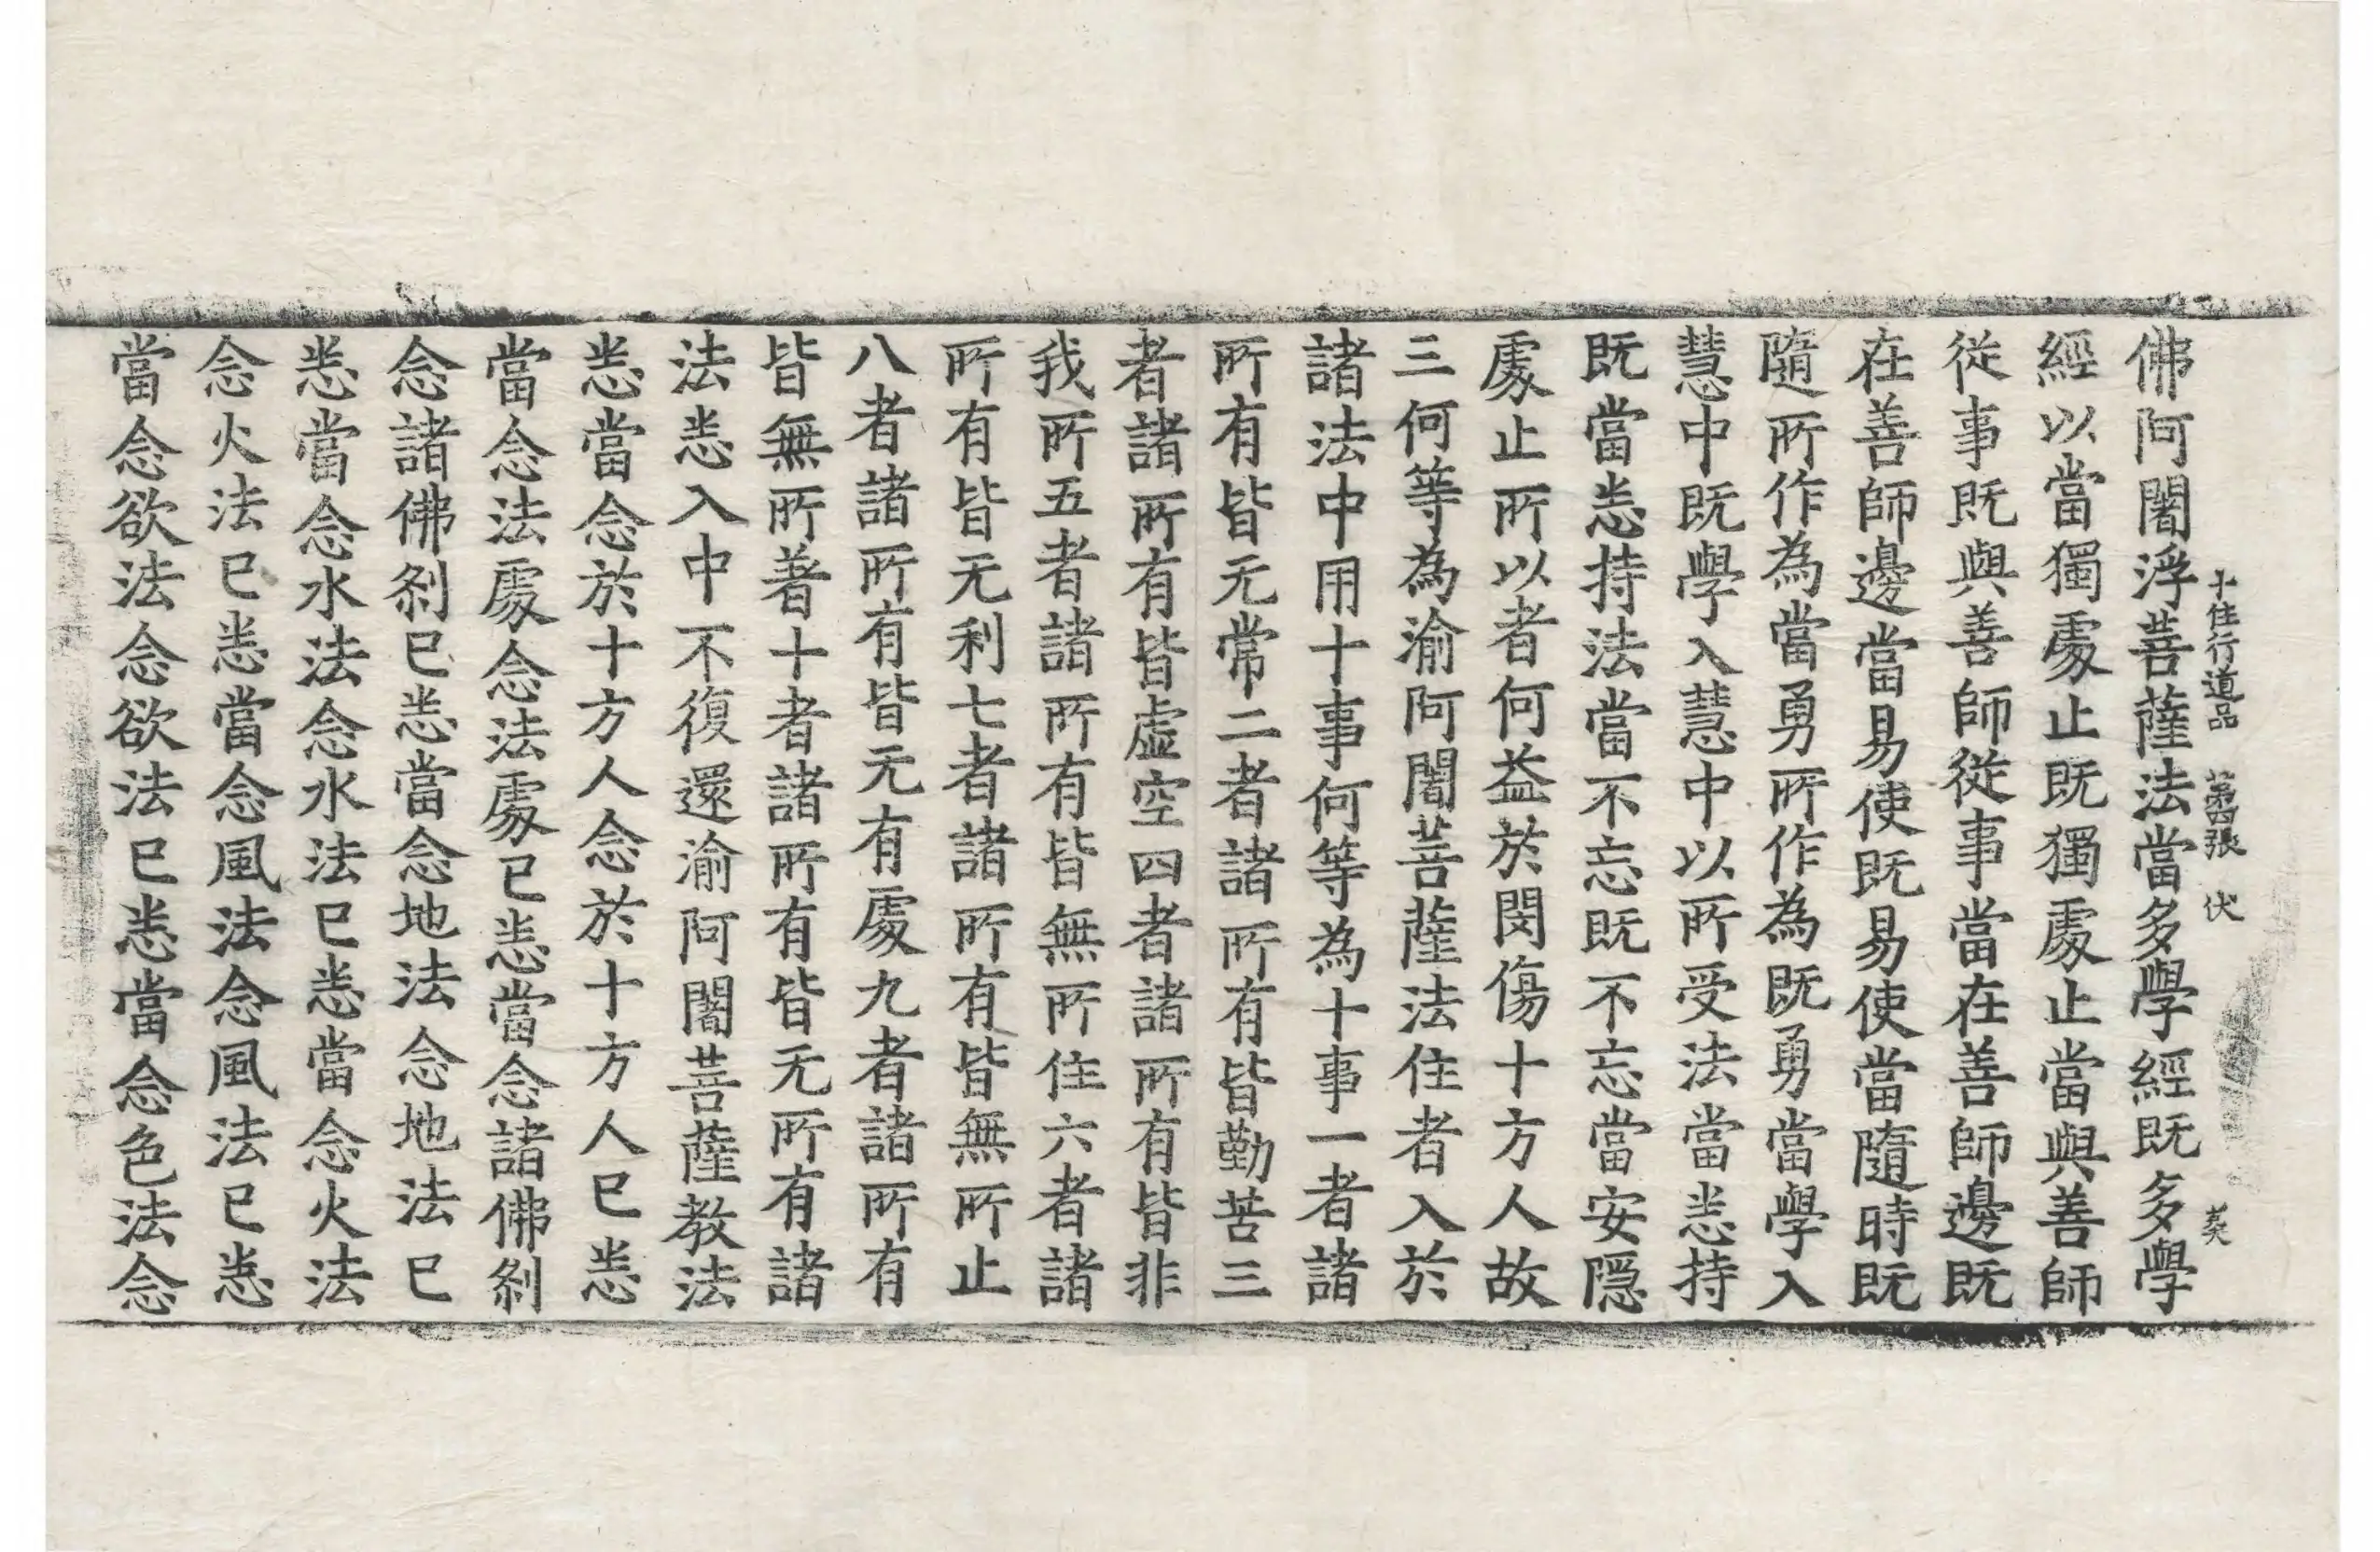 十住行道品　第四張　伏　英
佛阿闍浮菩薩法當多學經既多學
經以當獨處止既獨處止當與善師
從事既與善師從事當在善師邊既
在善師邊當易使既易使當隨時既
隨所作為當勇所作為既勇當學入
慧中既學入慧中以所受法當悉持
既當悉持法當不忘既不忘當安隱
處止所以者何益於閔傷十方人故
三何等為渝阿闍菩薩法住者入於
諸法中用十事何等為十事一者諸
所有皆无常二者諸所有皆勤苦三
者諸所有皆虛空四者諸所有皆非
我所五者諸所有皆無所住六者諸
所有皆无利七者諸所有皆無所止
八者諸所有皆无有處九者諸所有
皆無所著十者諸所有皆无所有諸
法悉入中不復還渝阿闍菩薩教法
悉當念於十方人念於十方人已悉
當念法處念法處已悉當念諸佛剎
念諸佛剎已悉當念地法念地法已
悉當念水法念水法已悉當念火法
念火法已悉當念風法念風法已悉
當念欲法念欲法已悉當念色法念